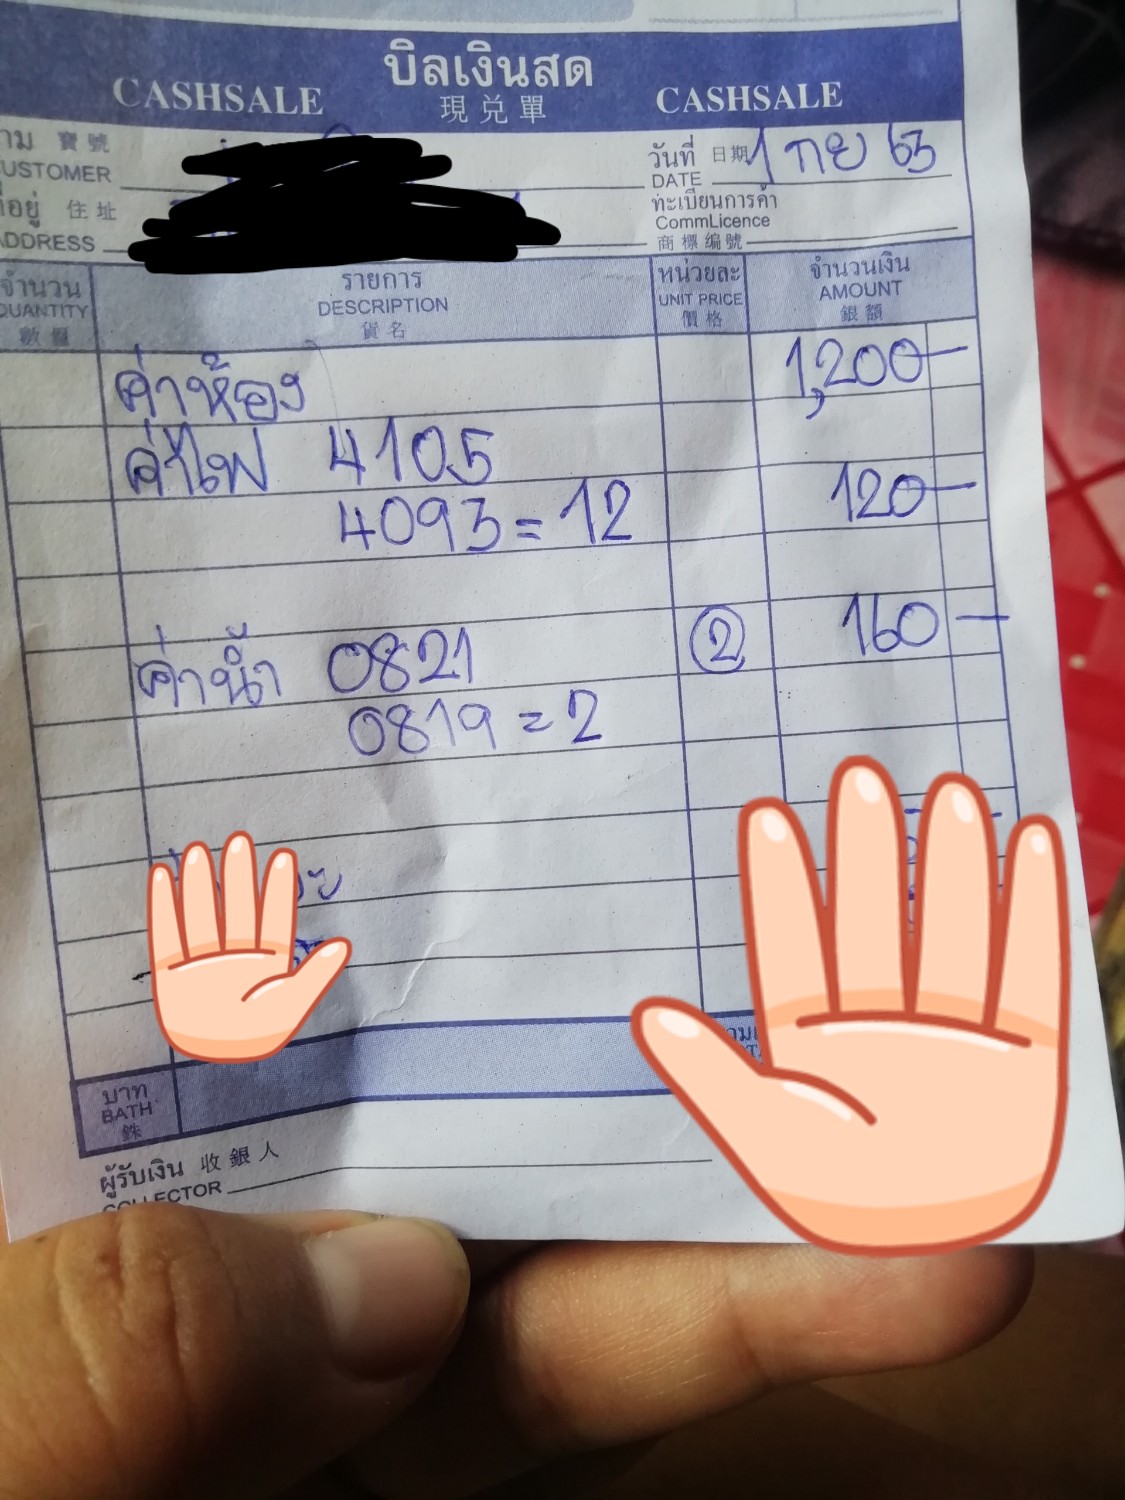 บิลเงินสด
CASHSALE 現兑單 CASHSALE
寶號
CUSTOMER
วันที่ 日期 1 กย 63
DATE
ที่อยู่ 住址
ADDRESS
ทะเบียนการค้า
CommLicence
商標编號
จำนวน รายการ หน่วยละ จำนวนเงิน
QUANTITY DESCRIPTION UNIT PRICE AMOUNT
數量 貨名 價格 銀額
ค่าห้อง 1,200-
ค่าไฟ 4105
4093 = 12 120-
ค่าน้ำ 0821 2 160-
0819 = 2
บาท
BATH
銖
ผู้รับเงิน 收銀人
COLLECTOR